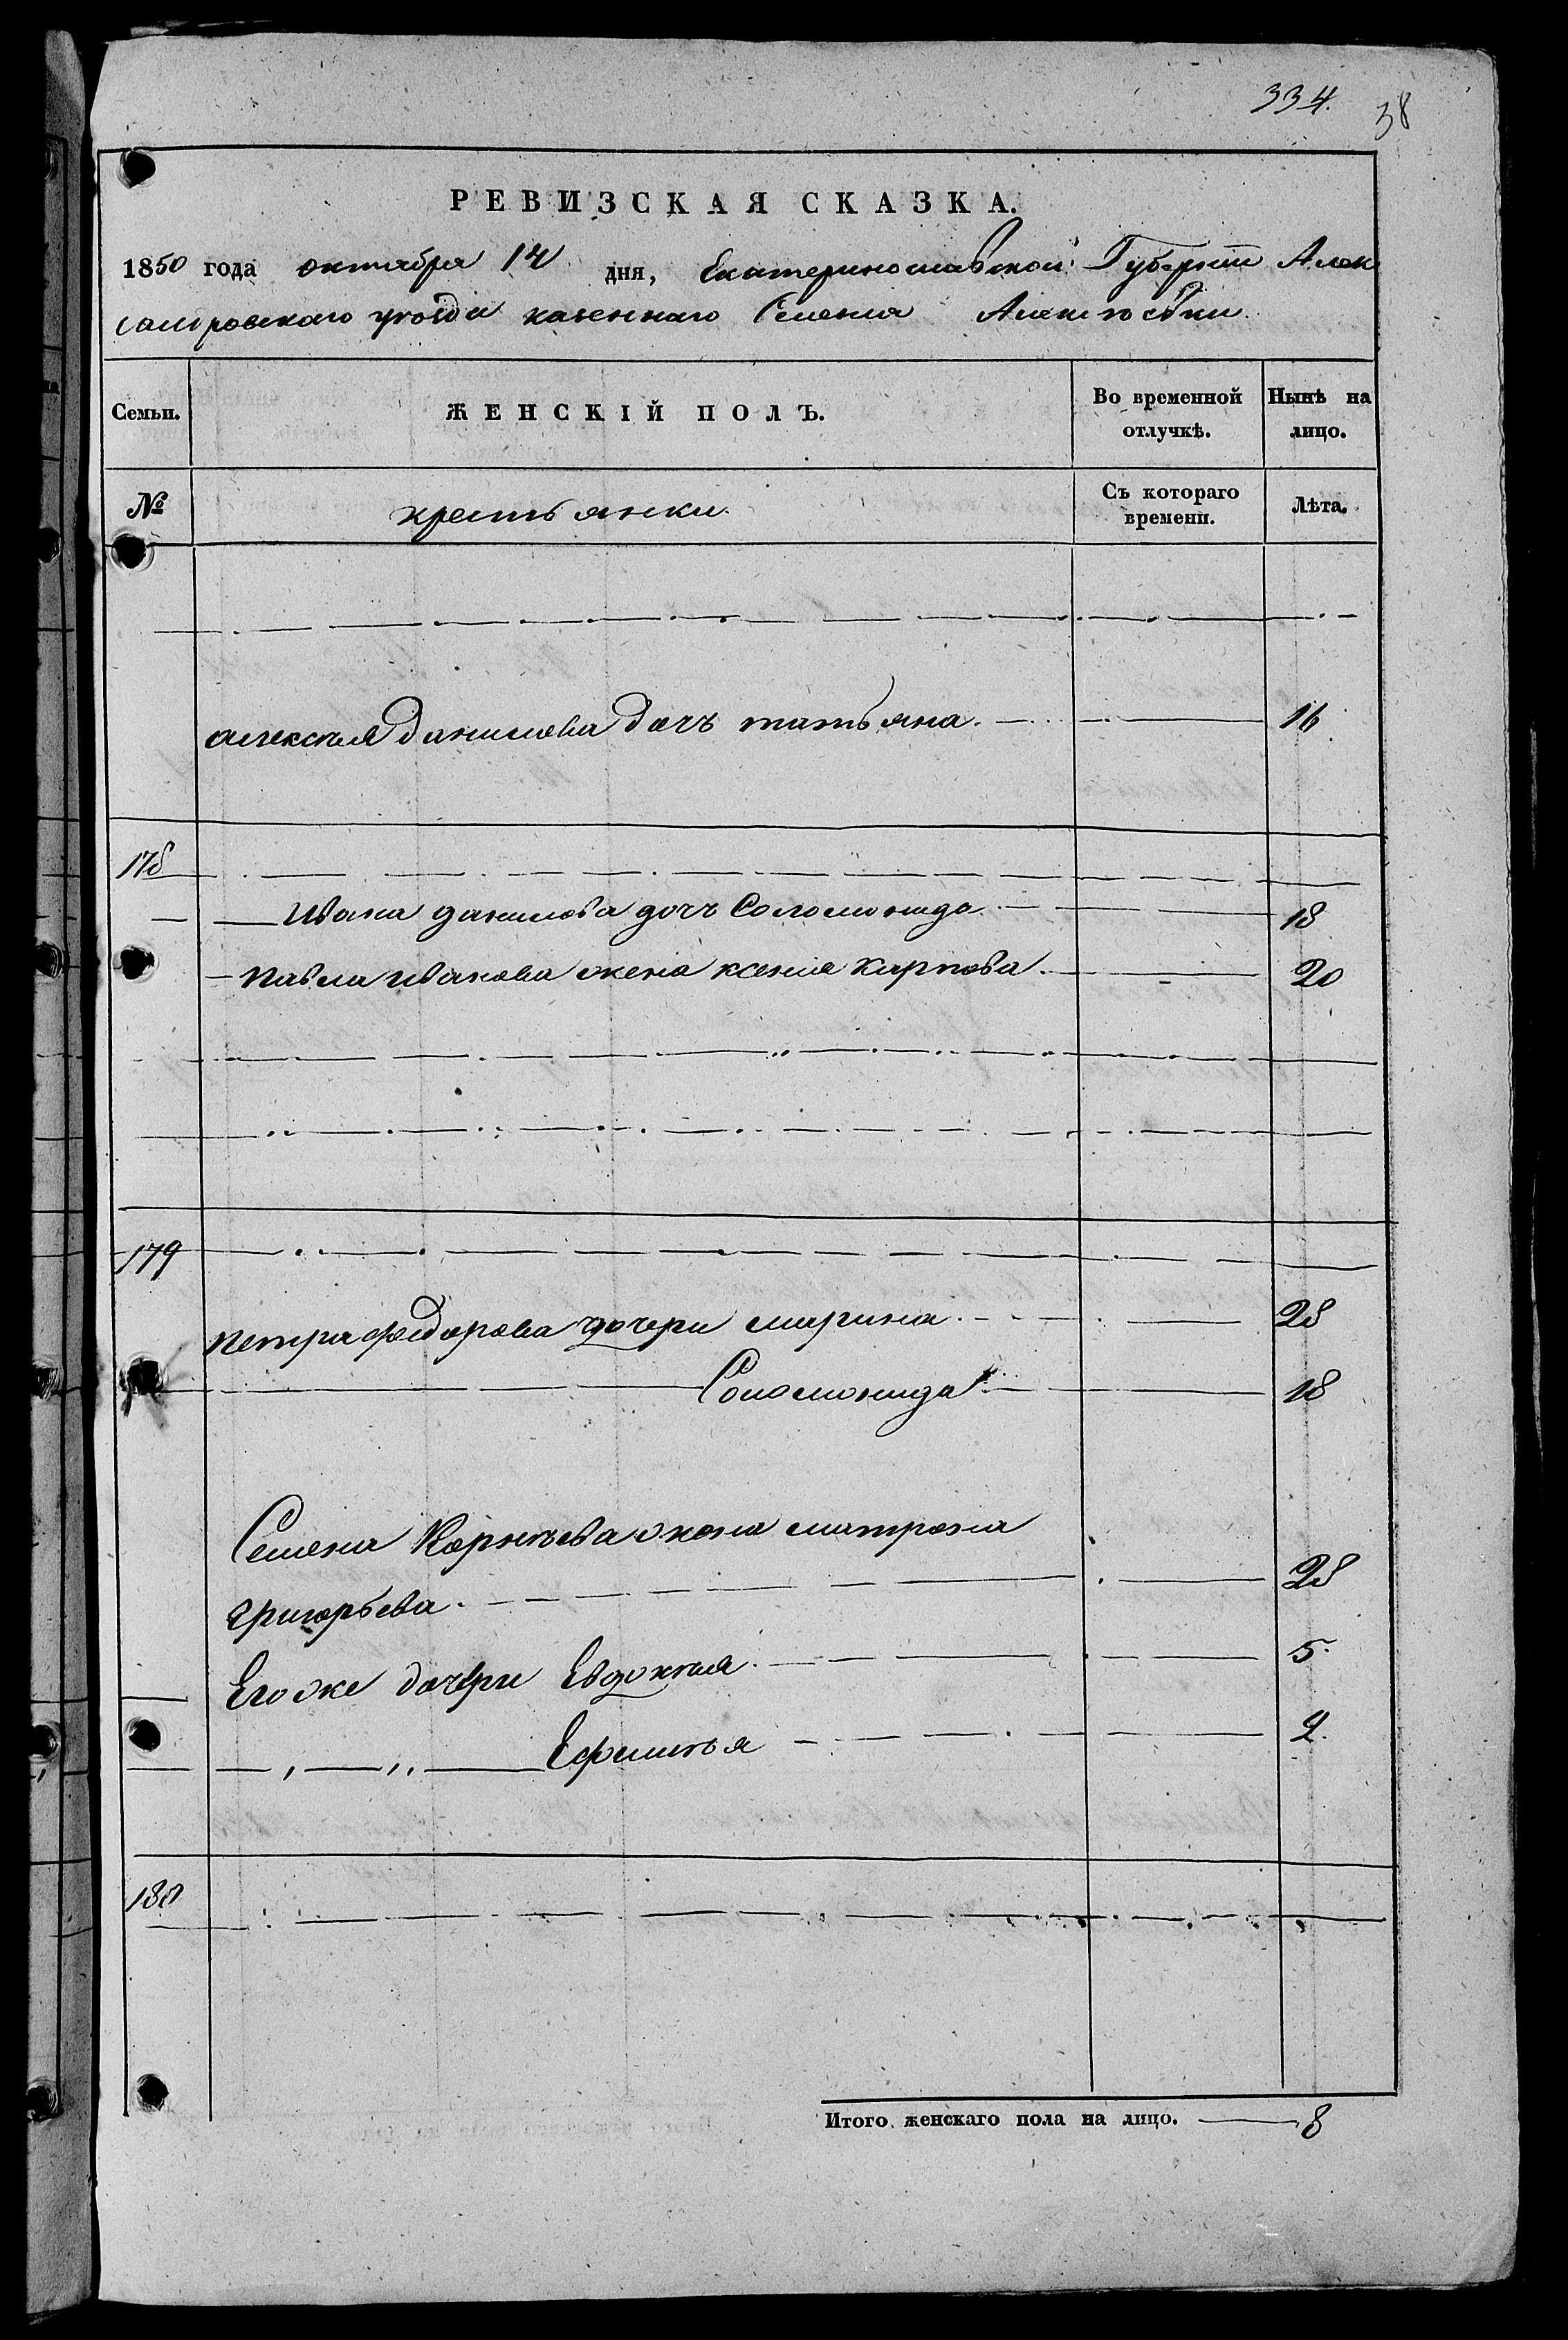 334.
38
РЕВИЗСКАЯ СКАЗКА.
1850 года октября 14 дня, Екатеринославской Губерніи Алек
сандровскаго уѣзда казеннаго Селенія Алексѣевки
Семьи. ЖЕНСКІЙ ПОЛЪ. Во временной отлучкѣ. Нынѣ на лицо.
№ крестьянки. Съ котораго времени. Лѣта.
алексѣя данилова дочь татьяна. 16
178
Ивана данилова дочь Соломонида. 18
Павла иванова жена ксенія Карпова. 20
179
петра федорова дочери марина. 28
Соломонида 18
Семена Корнѣева жена матрона
григорьева. 28
Его же дочери Евдокія. 5.
Ефимья 2.
180
Итого женскаго пола на лицо. 8